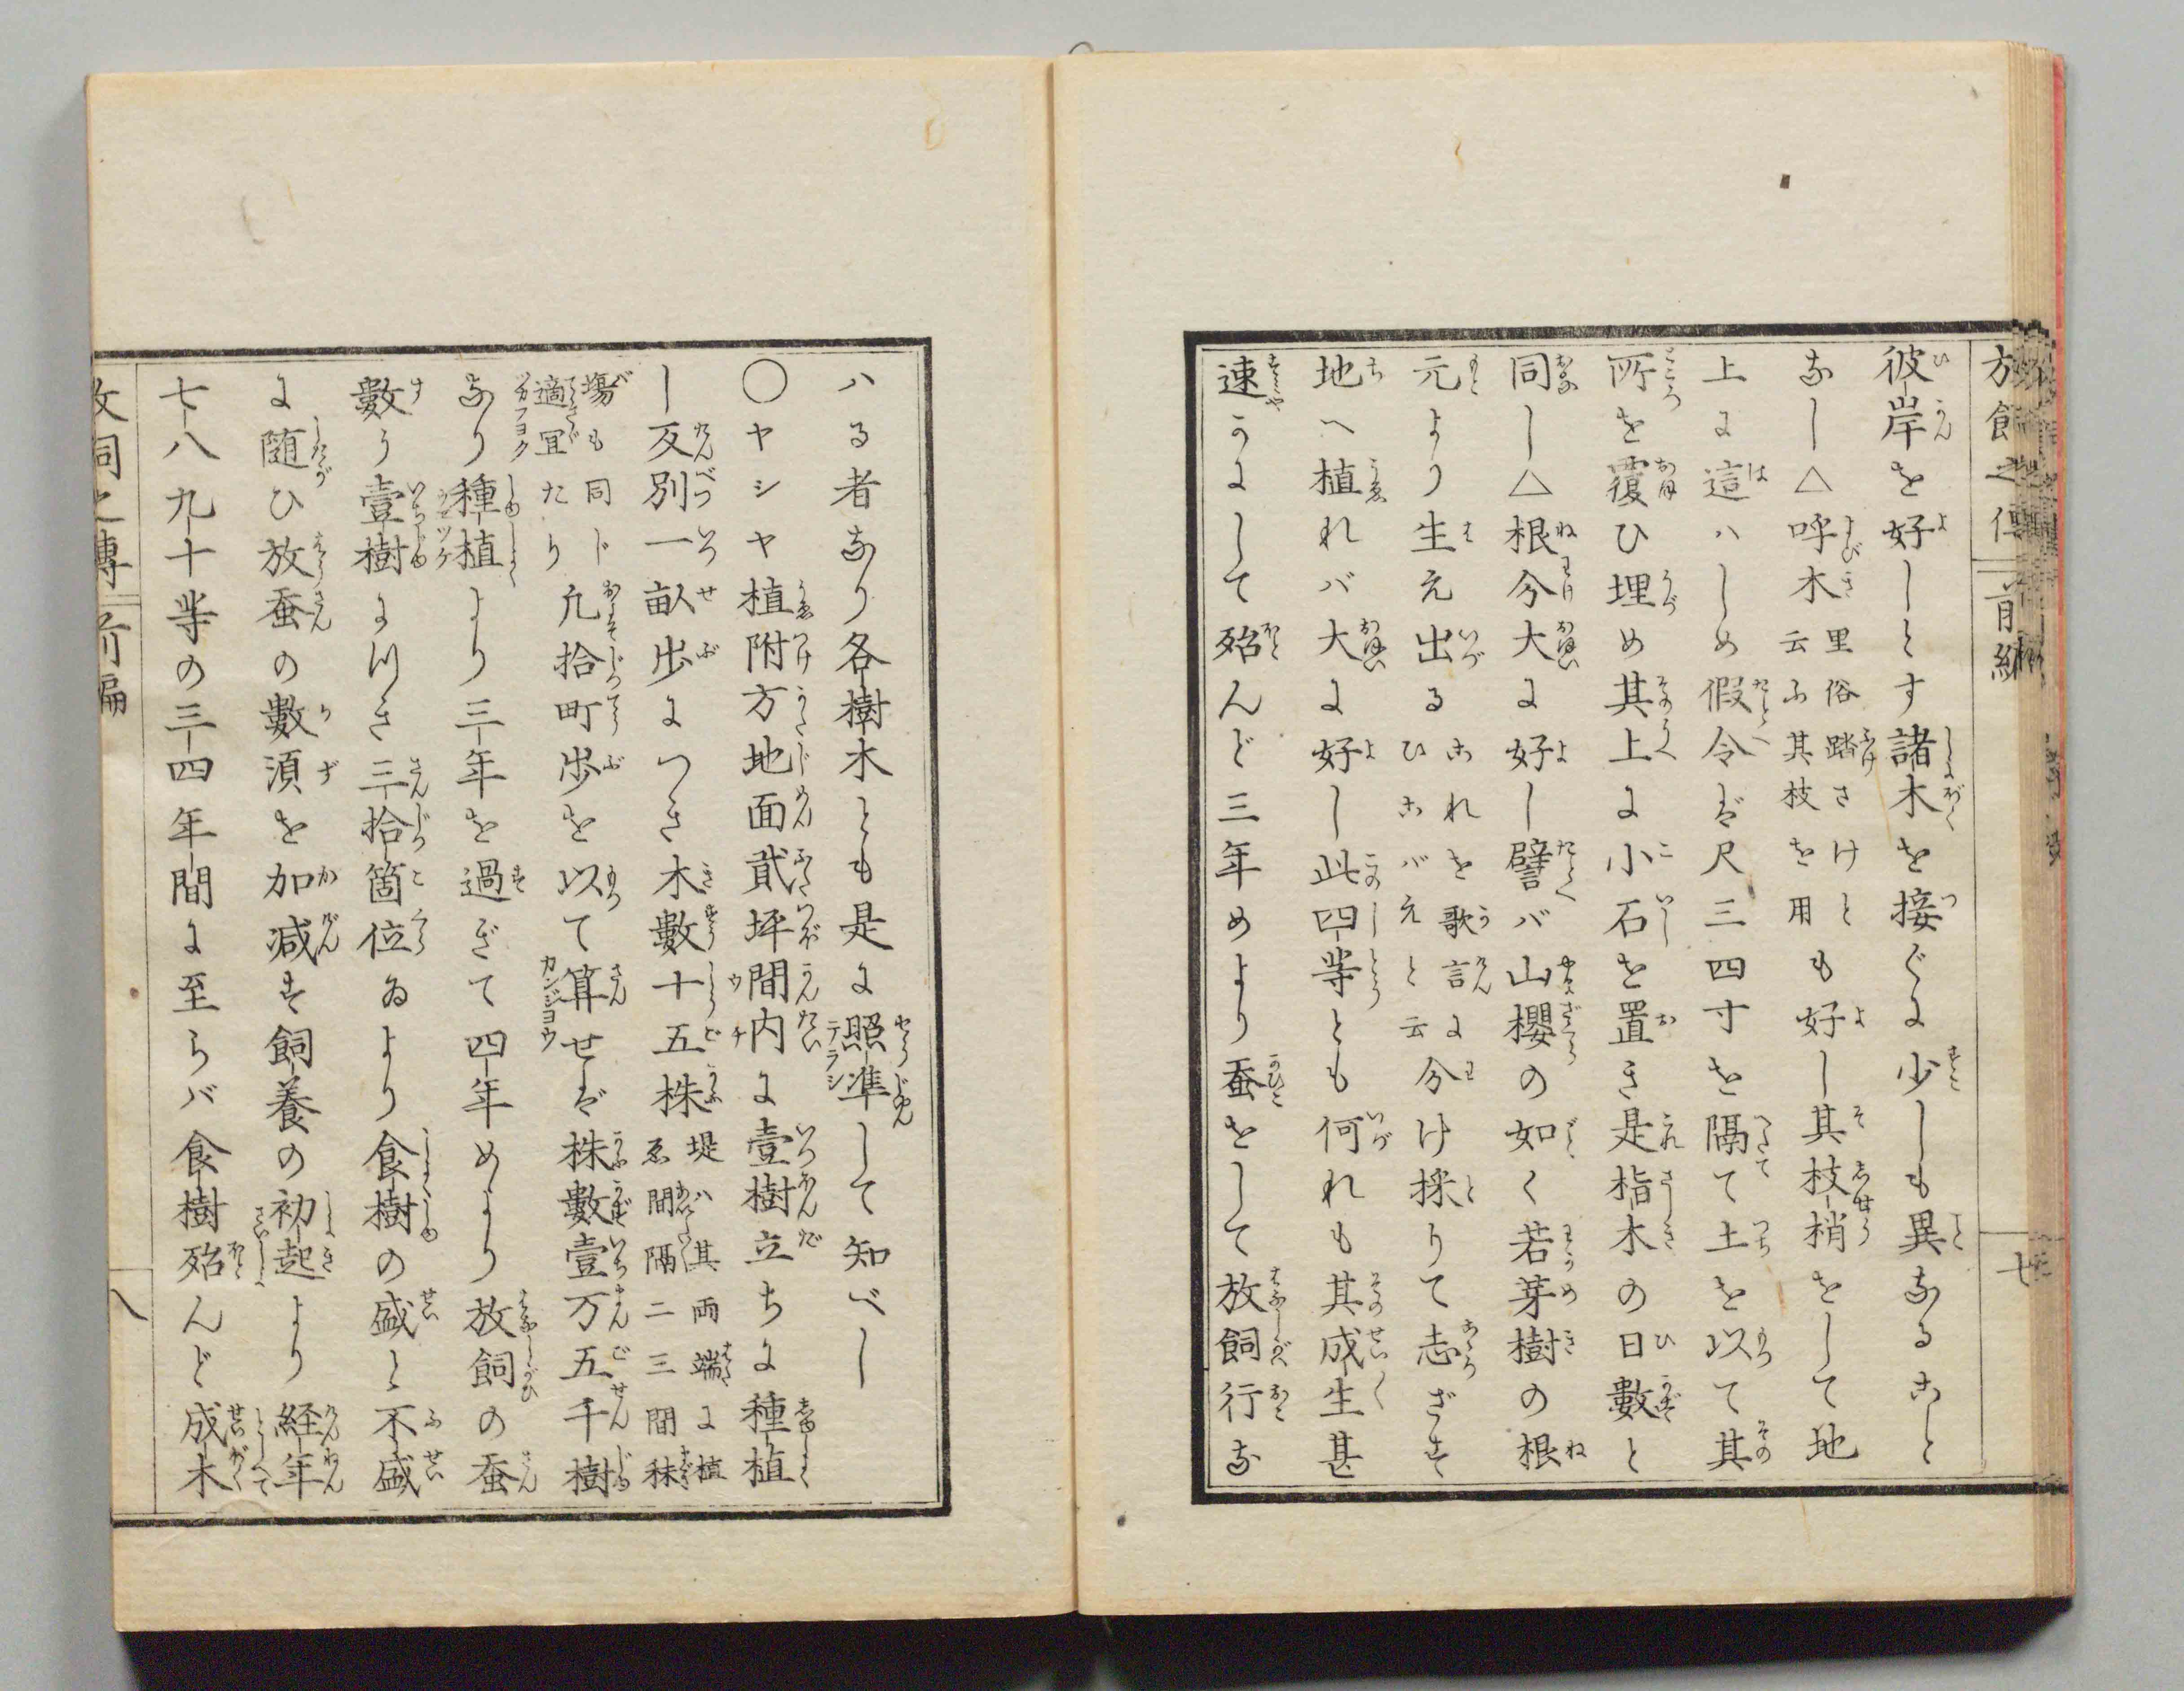 彼岸を好しとす諸木を接ぐに少しも異なること
なし△呼木里俗踏さけとも云ふ其枝を用好し其枝梢をして地
上に這ハしめ假令ば尺三四寸を隔て土を以て其
所を覆ひ埋め其上に小石を置き是楷木の日數と
同し△根分大に好し譬バ山櫻の如く若芽樹の根
元より生え出るこれを歌言にひこバえと云分け採りて志ざす
地へ植れバ大に好し此四等とも何れも其成生甚
速かにして殆んど三年めより蚕をして放飼行な
七
ハる者なり各樹木とも是に照準して知べし
〇ヤシヤ植附方地面貳坪間内に壹樹立ちに種植
し反別一畝歩につき木數十五株堤ハ其両端に植ゑ間隔二三間秣
塲も同じ適宜たり凢拾町歩を以て算せば株數壹万五千樹
なり種植より三年を過ぎて四年めより放飼の蚕
數う壹樹に付き三拾箇位ゐより食樹の盛と不盛
に随ひ放蚕の數湏を加減す飼養の初起より経年
七八九十等の三四年間に至らバ食樹殆んど成木
八